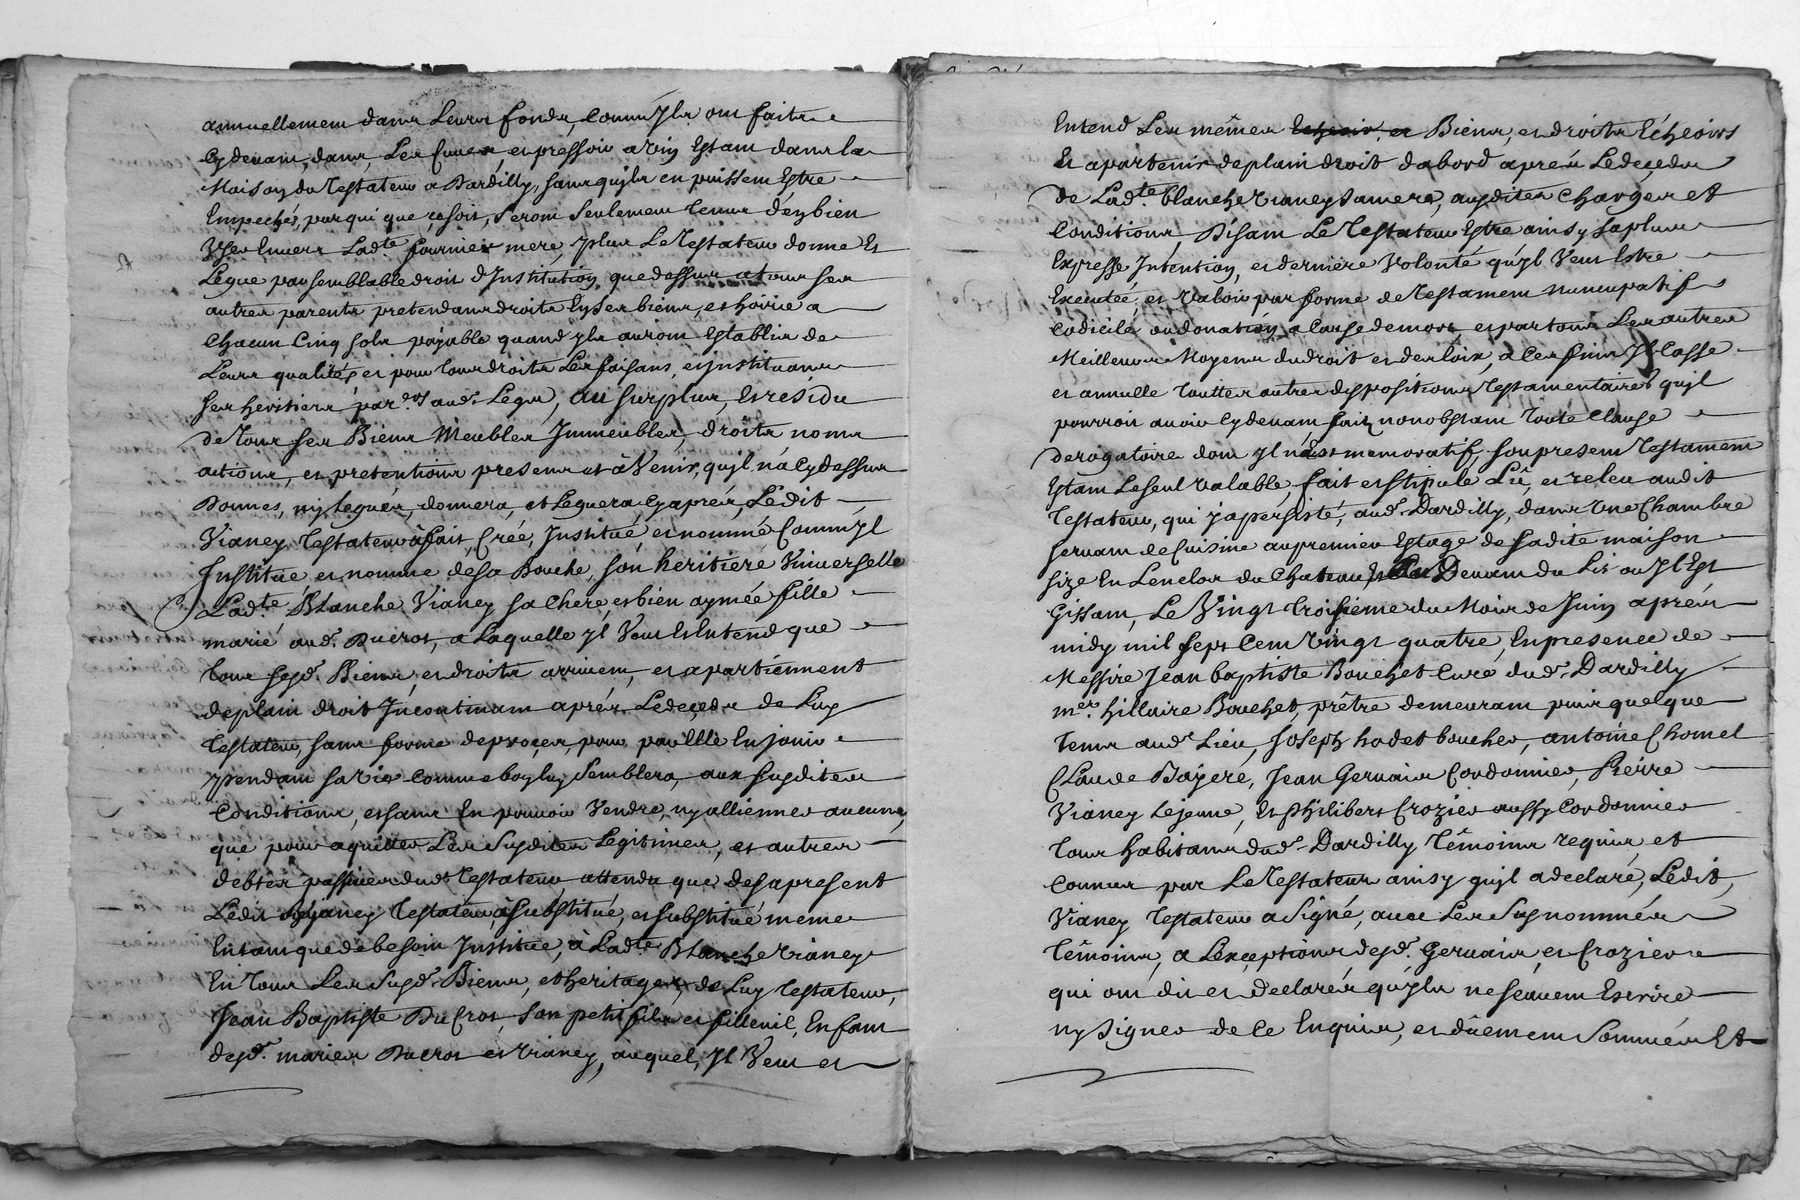 annuellement dans Leurs fonds, comme Jls ont faits
Cydevant, dans Les Cuues, et pressoir a vin Estant dans la
Maison du Testateur a Dardilly, sans quils en puissent Estre
Empechés, par qui que ce soit, seront seulement tenus d'en bien
Vser Enuers Lad.te fournier mere, plus Le Testateur donne Et
Legue par semblable droit d'Institution que dessus a tous ses
autres parents pretendans droits En ses biens, et hoirie a
Chacun Cinq sols payable quand Jls auront Establis de
Leurs qualités et pour tous droits Les faisant, et Jnstituant
ses heritiers par.ers aud. Legs, au surplus, Et résidu
de tous ses Biens Meubles Jmmeubles, droits noms
actions, et pretentions presens et à Venir, qu'jl n'a Cydessus
Donnés, ny Legués, donnera, et Leguera Cyaprés, Ledit
Vianey Testateur à fait, Créé, Jnstitué et nommé Comme Jl
Jnstitue et nomme de sa Bouche, son heritiere Vniverselle
Lad.te Blanche Vianey sa chere, et bien aymée fille
marié aud. Ducros, a Laquelle Jl Veut Et Entend que
tous sesd. Biens, et droits arrivent, et apartiennent
de plain droit Jncontinant aprés Le decedz de Luy
Testateur, sans forme de procez, pour par Elle En jouir
pendant sa vie comme bon luy semblera, aux susdites
Conditions, et sans En pouuoir Vendre, ny allienner aucuns,
que pour aquitter Les susdites Legitimes, et autres
debtes passiues dud. Testateur, attendu que des apresent
Ledit Vianey Testateur, à substitué, et substitué meme
En tant que de besoin Jnstitue, à Lad.te Blanche Vianey
En tous Les susd. Biens, et heritages, de Luy Testateur,
Jean Baptiste DuCros, son petit fils et filleuil, Enfant
desd. mariés Ducros et Vianey, auquel, Jl Veut et
Entend Les mêmes Biens, et droits Echeoirs
Et apartenir de plain droit d'abord aprés Le decedz
de Lad.te blanche Vianey sa mere, aux dites charges et
Conditions, Disant Le Testateur Estre ainsy sa plus
Expresse Jntention, et derniere Volonté qu'jl Veut Estre
Executée, et Valoir par forme de Testament Nuncupatif
Codicile, ou donation, a Cause de mort et par tous Les autres
Meilleurs Moyens du droit et des loix, a Ces fins Jl Casse
et annulle toutte autres dispositions Testamentaires qu'jl
pourroit auoir Cydevant fait, nonobstant toute Clause
derogatoire dont Jl n'est memoratif, son present Testament
Estant Le seul Valable, fait et stipule Lû, et releu audit
Testateur, qui y a persisté, aud. Dardilly, dans vne Chambre
seruant de Cuisine au premier Estage de sa dite maison
size En Lenclos du Chateau, Devant du Lit ou Jl Est
Gissant, Le Vingt troisieme du Mois de Juin aprés
midy mil sept Cent vingt quatre, En presence de
Messire Jean baptiste Bouchet Curé dud. Dardilly
m.re hillaire Bouchet, prêtre demeurant puis quelque
tems aud. Lieu, Joseph hodet boucher, antoine Chomel
Claude Bajere, Jean Gervais Cordonnier, Pierre
Vianey Lejeune, Et Philibert Crozier aussy Cordonnier
tous habitans dud. Dardilly têmoins requis et
Connus par Le Testateur ainsy qu'jl a declaré, Ledit,
Vianey Testateur a Signé, auec Les susnommés
têmoins, a L'exceptions desd. Gervais, et Crozier
qui ont dit et declarés qu'Jls ne sçauent Escrire
ny signer de Ce Enquis, et dûement Sommés Et